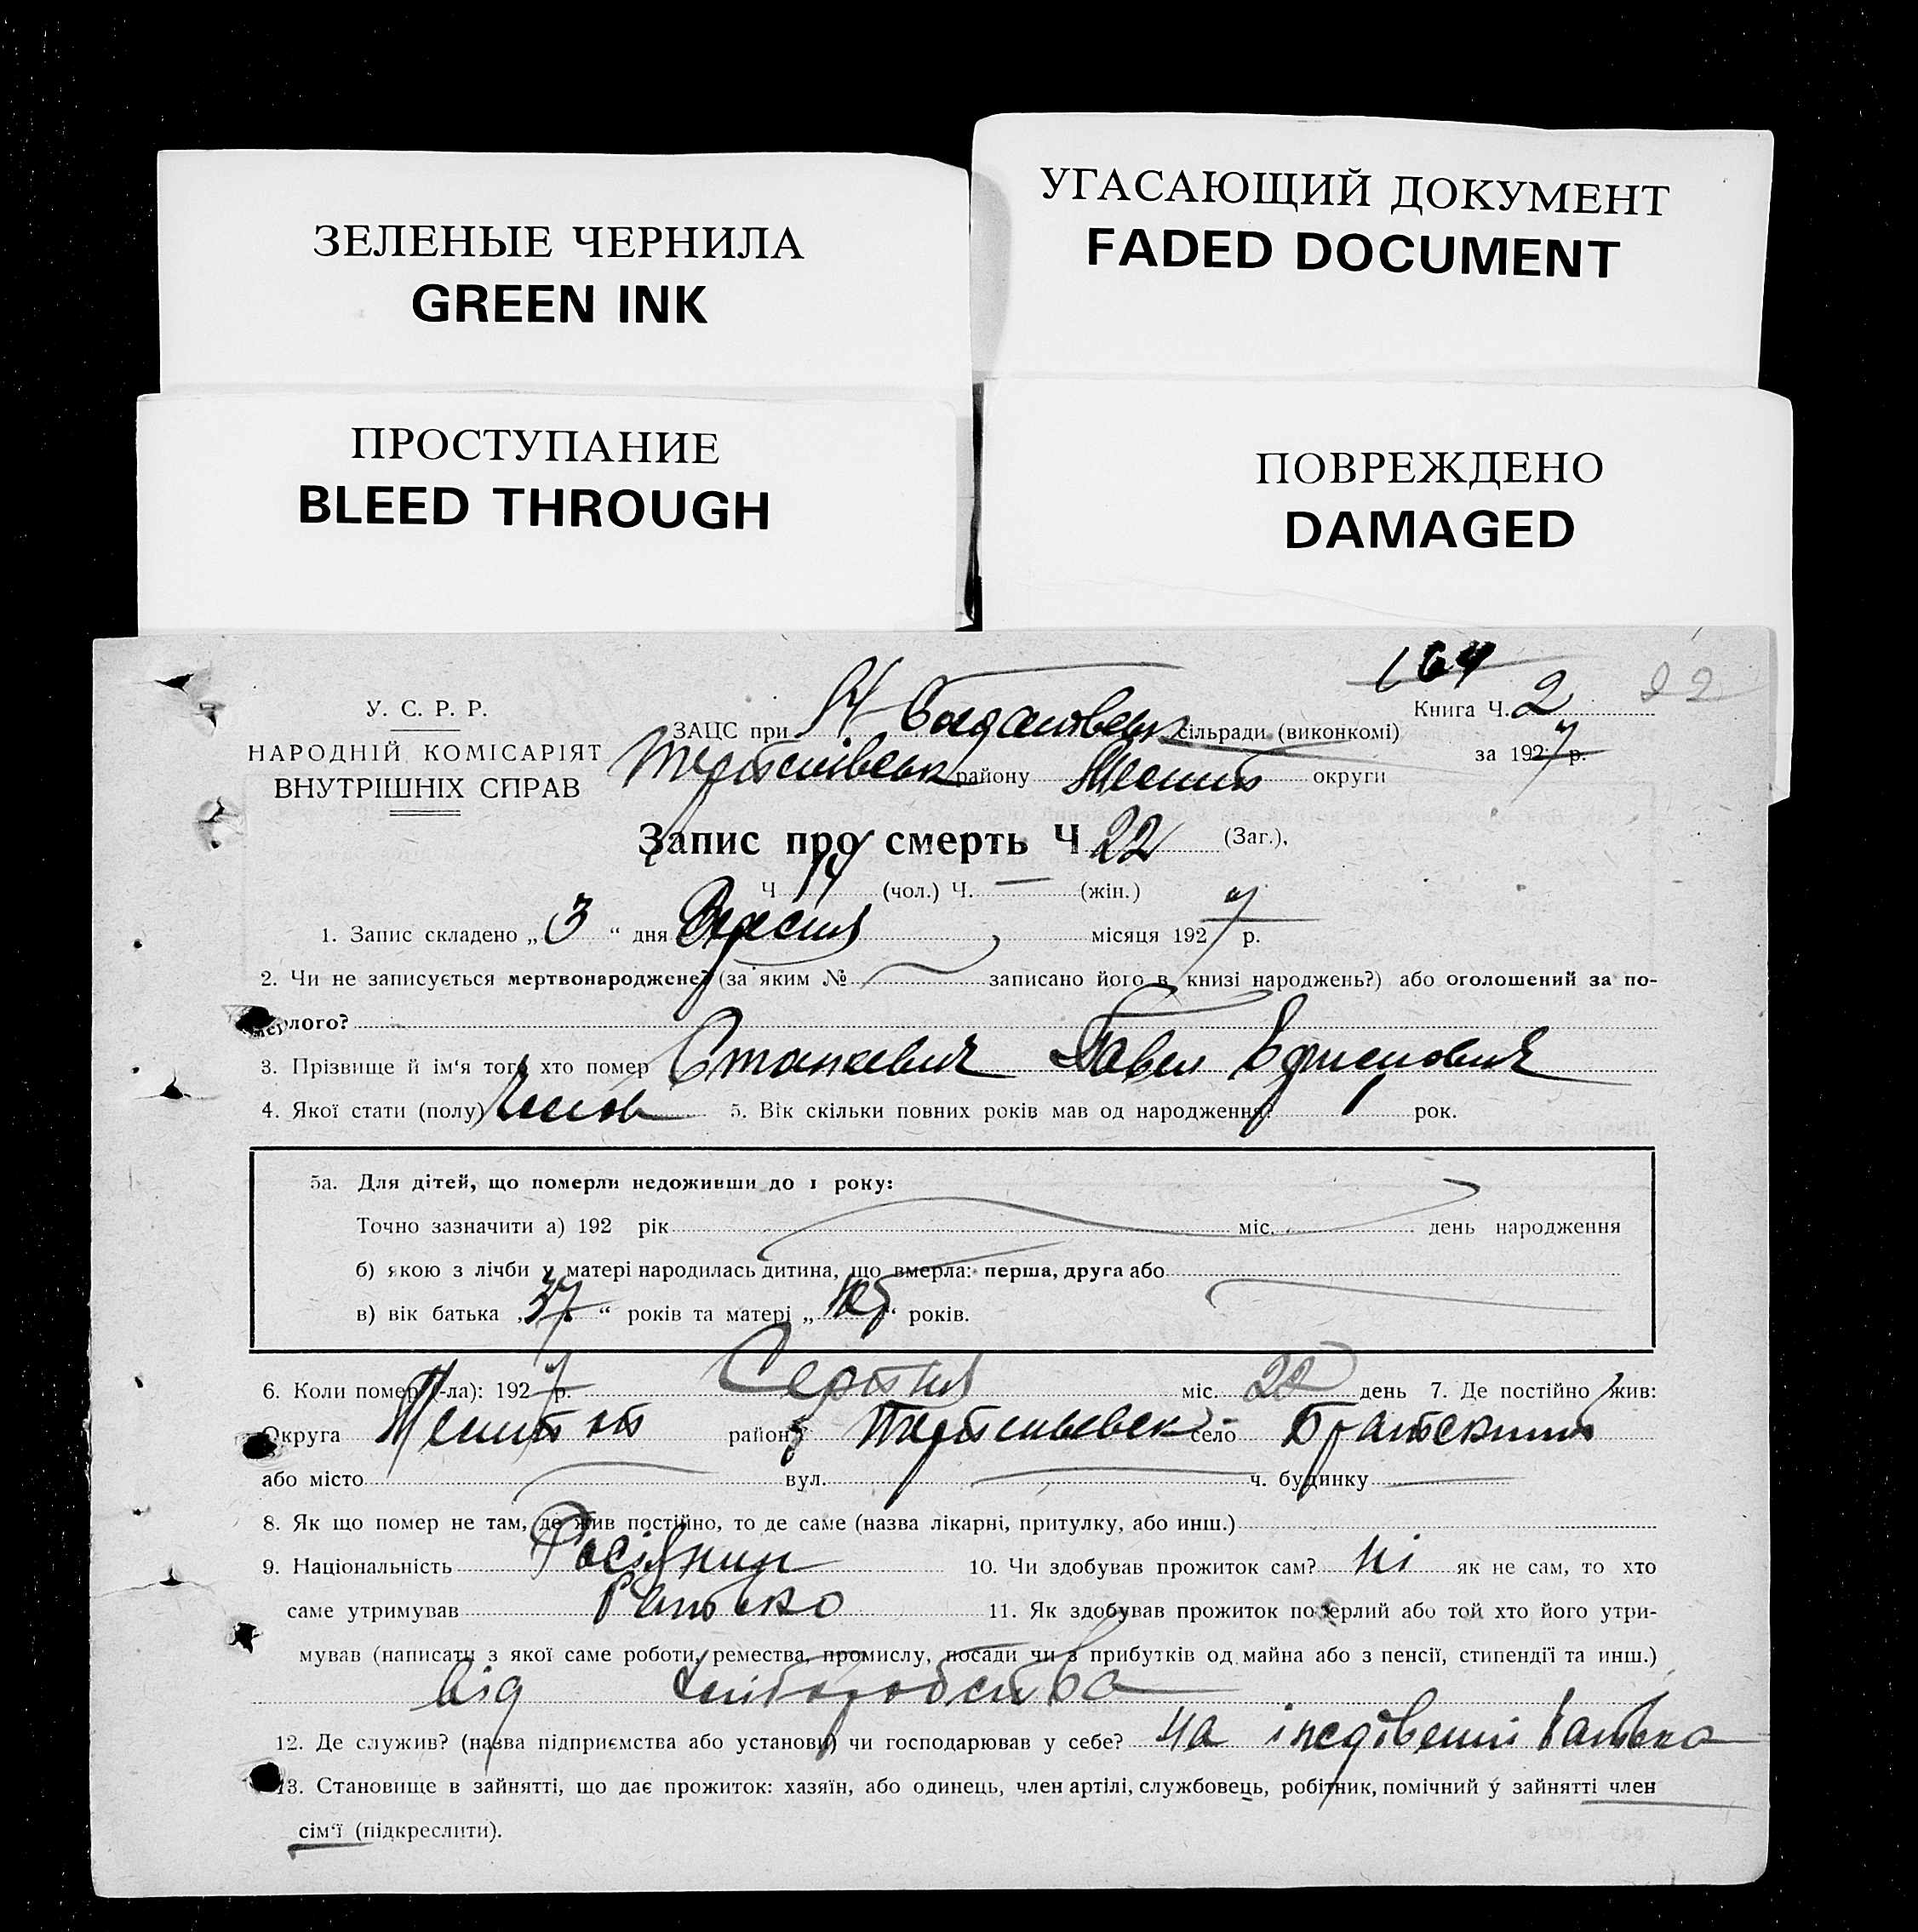 ЗЕЛЕНЫЕ ЧЕРНИЛА
GREEN INK
УГАСАЮЩИЙ ДОКУМЕНТ
FADED DOCUMENT
ПРОСТУПАНИЕ
BLEED THROUGH
ПОВРЕЖДЕНО
DAMAGED
164
22
У. С. Р. Р.
НАРОДНІЙ КОМІСАРІЯТ
ВНУТРІШНІХ СПРАВ
Книга Ч. 2
за 1927 р.
ЗАЦС при сільради (виконкомі)
району округи
Запис про смерть Ч 22 (Заг.),
Ч 14 (чол.) Ч. — (жін.)
1. Запис складено „ 3 “ дня Вересня місяця 1927 р.
2. Чи не записується мертвонароджене? (за яким № записано його в книзі народжень?) або оголошений за по-
мерлого?
3. Прізвище й ім‘я того хто помер Станкевич Павел Ефимович
4. Якої стати (полу) 5. Вік скільки повних років мав од народження? 1 рок.
5а. Для дітей, що померли недоживши до 1 року:
Точно зазначити а) 192 рік міс. день народження
б) якою з лічби у матері народилась дитина, що вмерла: перша, друга або
в) вік батька „ 37 “ років та матері „ “ років.
6. Коли помер (-ла): 1927 р. Серпня міс. день 7. Де постійно жив:
Округа район село
або місто вул. ч. будинку
8. Як що помер не там, де жив постійно, то де саме (назва лікарні, притулку, або инш.)
9. Національність 10. Чи здобував прожиток сам? ні як не сам, то хто
саме утримував Батько 11. Як здобував прожиток померлий або той хто його утри-
мував (написати з якої саме роботи, ремества, промислу, посади чи з прибутків од майна або з пенсії, стипендії та инш.)
від хліборобства
12. Де служив? (назва підприємства або установи) чи господарював у себе? на батька
13. Становище в зайнятті, що дає прожиток: хазяїн, або одинець, член артілі, службовець, робітник, помічний у зайнятті член
сім‘ї (підкреслити).